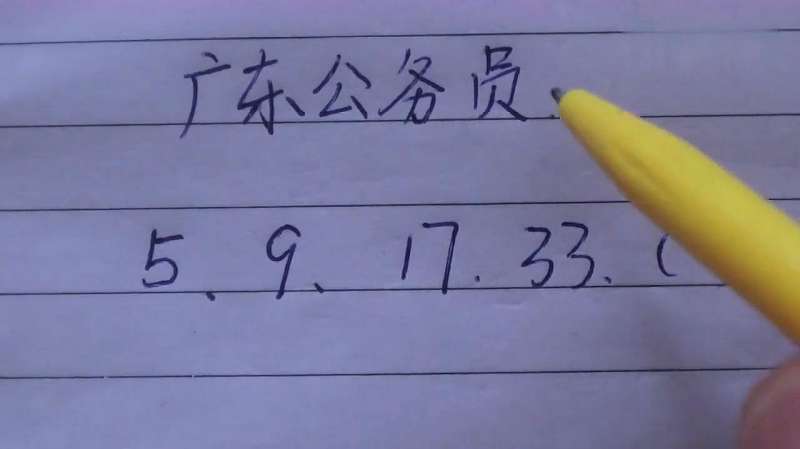 广东公务员.
5、9、17.33.(